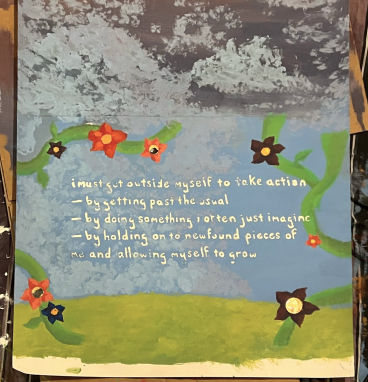 i must get outside myself to take action
— by getting past the usual
— by doing something i often just imagine
— by holding on to newfound pieces of
me and allowing myself to grow